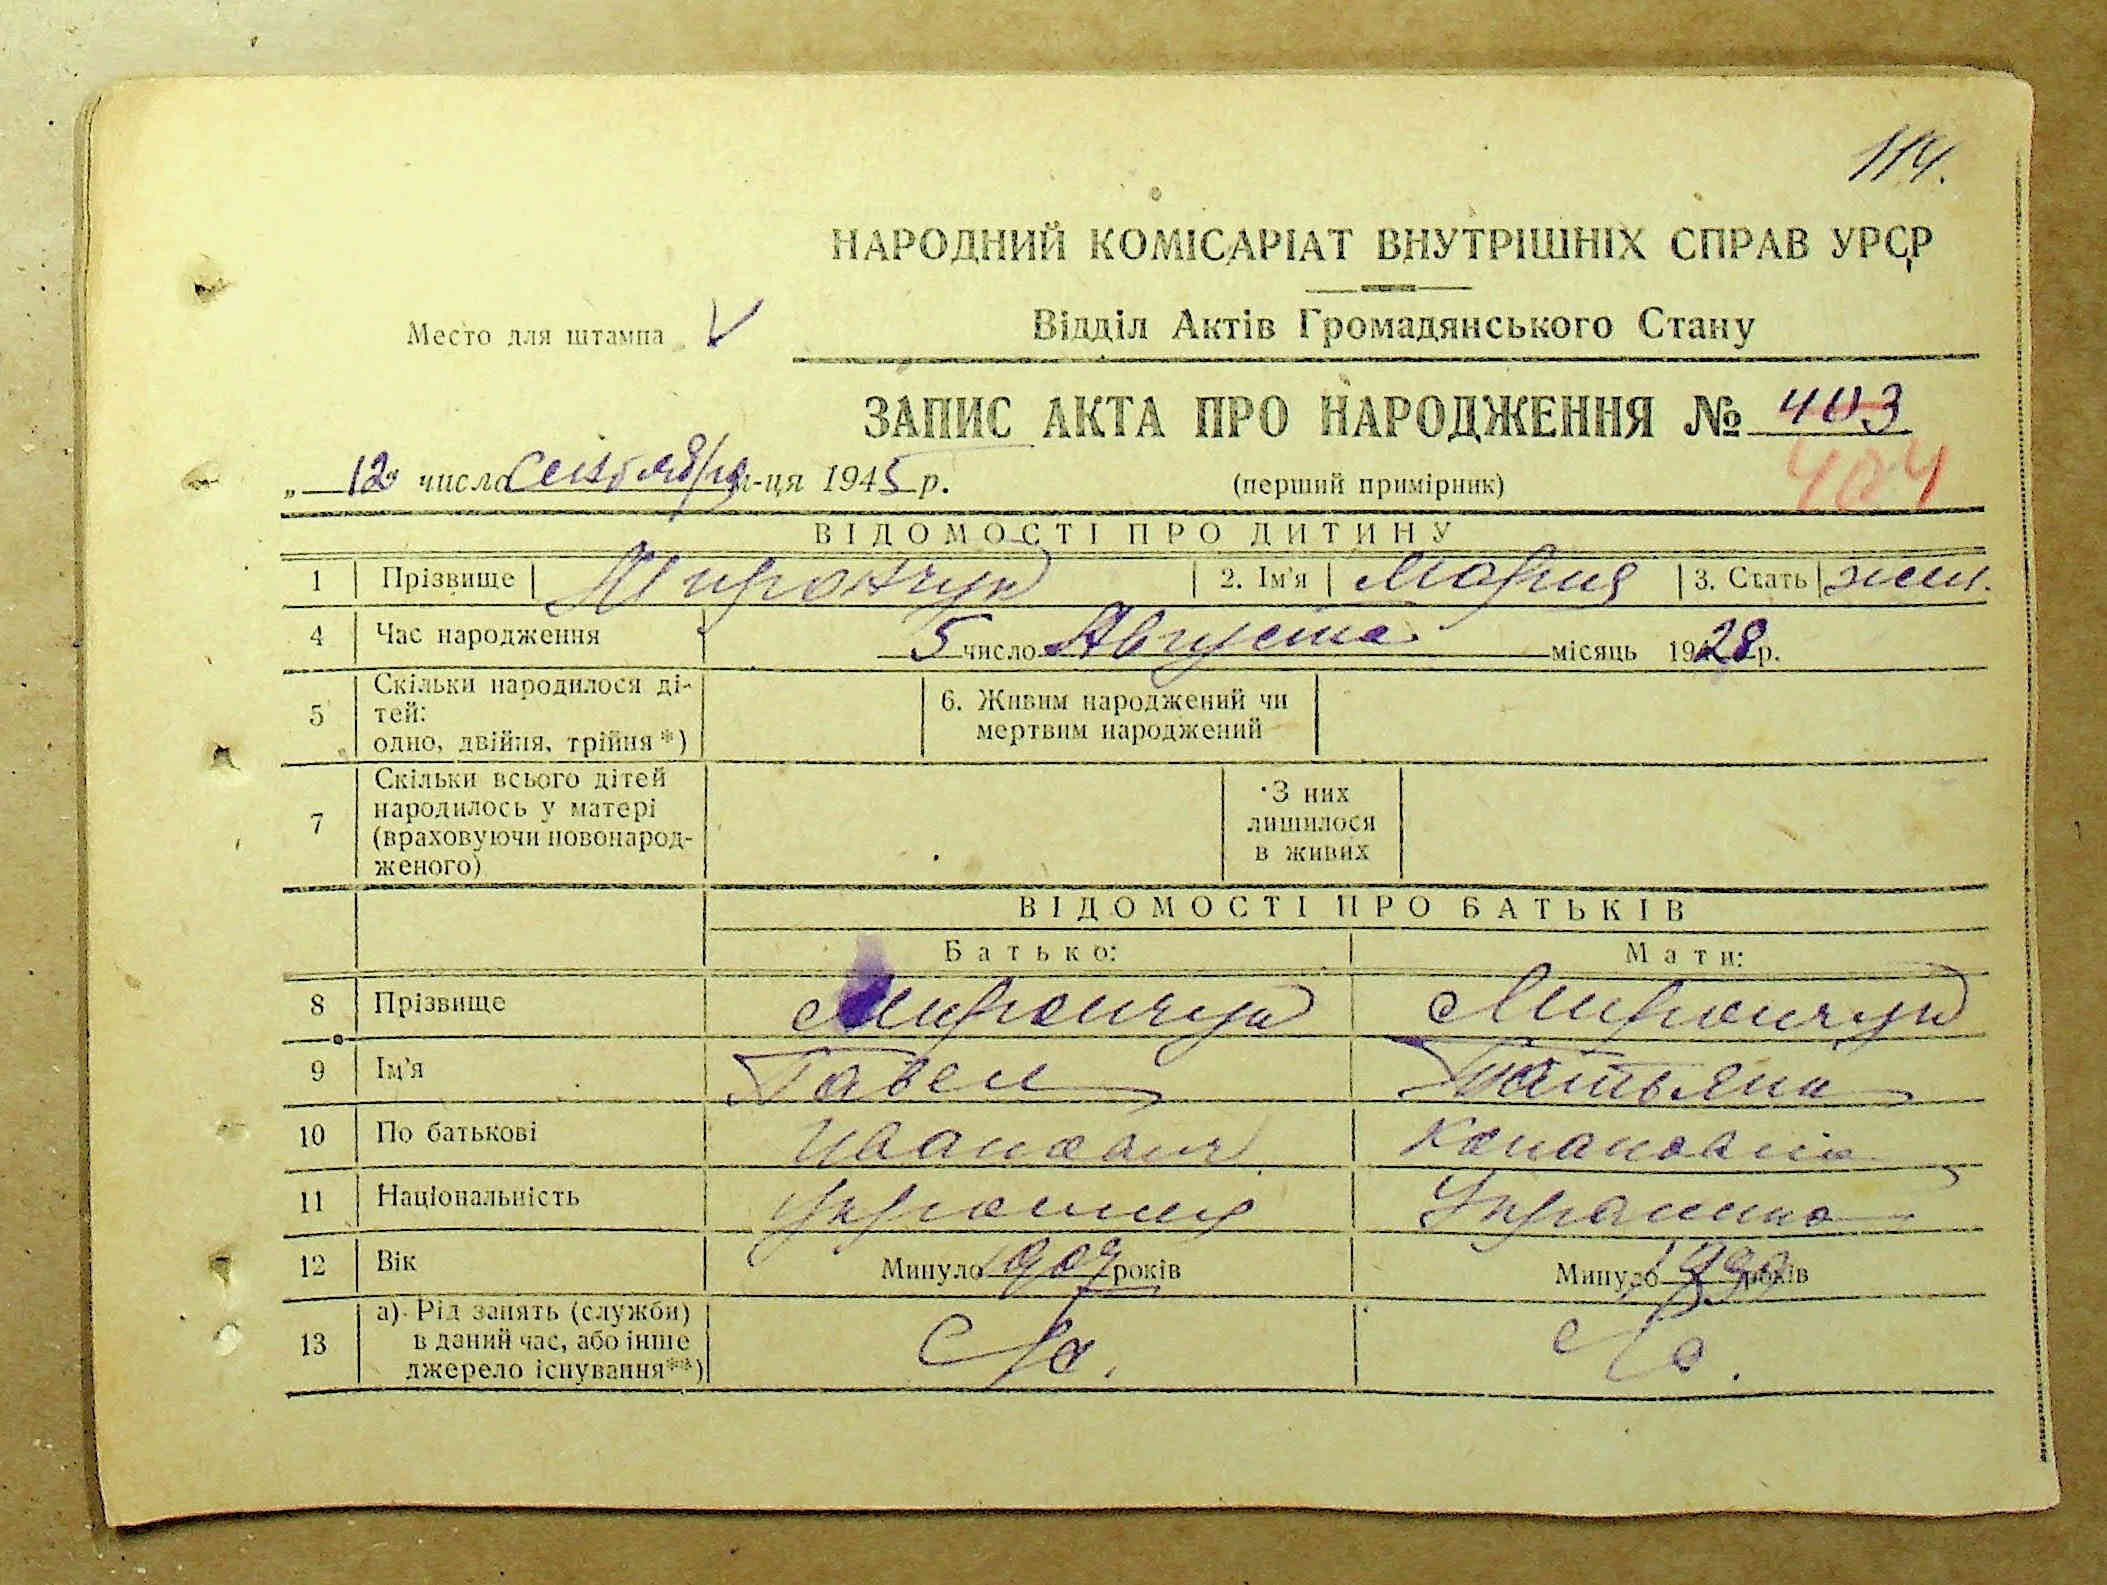 114.
НАРОДНИЙ КОМІСАРІАТ ВНУТРІШНІХ СПРАВ УРСР
Место для штампа V
Відділ Актів Громадянського Стану
ЗАПИС АКТА ПРО НАРОДЖЕННЯ № 403
„ 12 числа Сентября м-ця 1945 р. (перший примірник) 404
ВІДОМОСТІ ПРО ДИТИНУ
1 Прізвище Мирончук 2. Ім'я Мария 3. Стать жен.
4 Час народження 5 число Августа місяць 1928 р.
5 Скільки народилося ді-
тей:
одно, двійня, трійня *)
6. Живим народжений чи
мертвим народжений
7 Скільки всього дітей
народилось у матері
(враховуючи новонарод-
женого)
З них
лишилося
в живих
ВІДОМОСТІ ПРО БАТЬКІВ
Батько: Мати:
8 Прізвище Мирончук Мирончук
9 Ім'я Павел Татьяна
10 По батькові Иванович Конановна
11 Національність Украинец Украинка
12 Вік Минуло 1907 років Минуло років
13 а) Рід занять (служби)
в даний час, або інше
джерело існування**)
С/х. С/х.